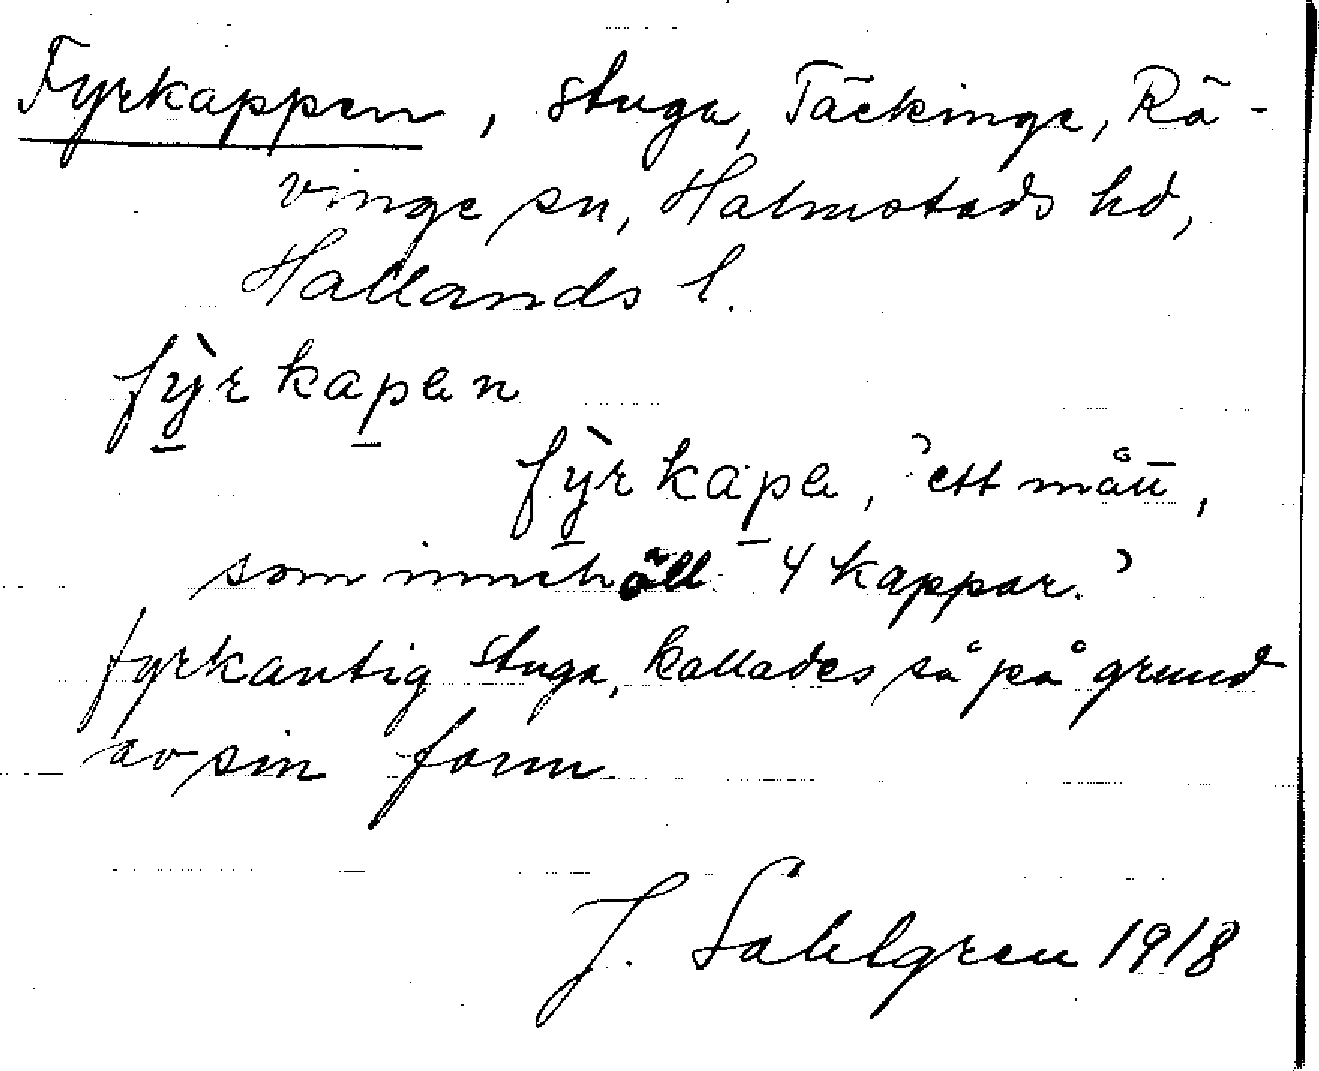 Fyrkappen, stuga, Täckinge, Rä-
vinge sn, Halmstads hd,
Hallands l.
fỳrkapen
fỳrkapa, 'ett mått,
som innehöll 4 kappar.'
fyrkantig stuga, kallades så på grund
av sin form
J. Sahlgren 1918